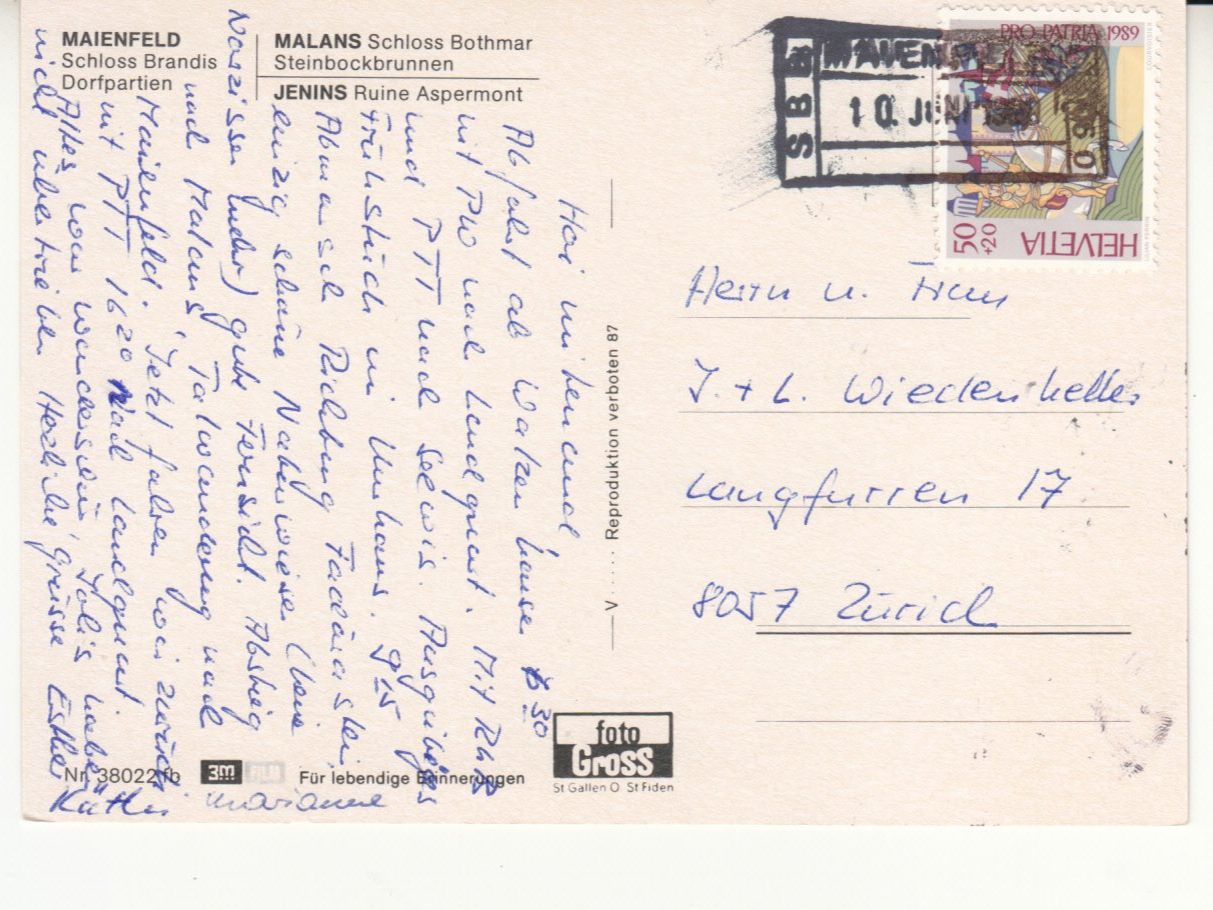 MAIENFELD
Schloss Brandis
Dorfpartien
MALANS Schloss Bothmar
Steinbockbrunnen
JENINS Ruine Aspermont
SBB
MAIENFELD
10. JUNI
PRO PATRIA 1989
50
+20
HELVETIA
Hoi mitenand,
Abfahrt ab 30
mit PW nach Landquart. Mit RhB
und PTT nach Seewis. Ausgiebiges
Frühstück im Kurhaus. 9 25
Abmarsch Richtung Fadära stei,
einzig schöne Naturwiesen (keine
Narzissen mehr) gute Fernsicht. Abstieg
nach Malans, Talwanderung nach
Maienfeld. Jetzt fahren wir zurück
mit PTT 16 20 nach Landquart.
Alles war wunderschön,
nicht übertrieben Herzliche Grüsse Esther
Käthi
Marianne
V ..... Reproduktion verboten 87
Herrn u. Frau
J. + L. Wiederkeller
Langfurren 17
8057 Zürich
Nr. 38022 fb
3M
Für lebendige Erinnerungen
foto
Gross
St Gallen O St Fiden